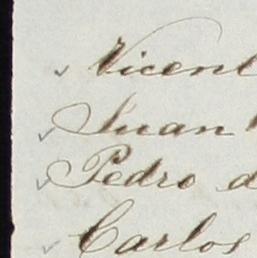 Vicent
Juan
Pedro d
Carlos